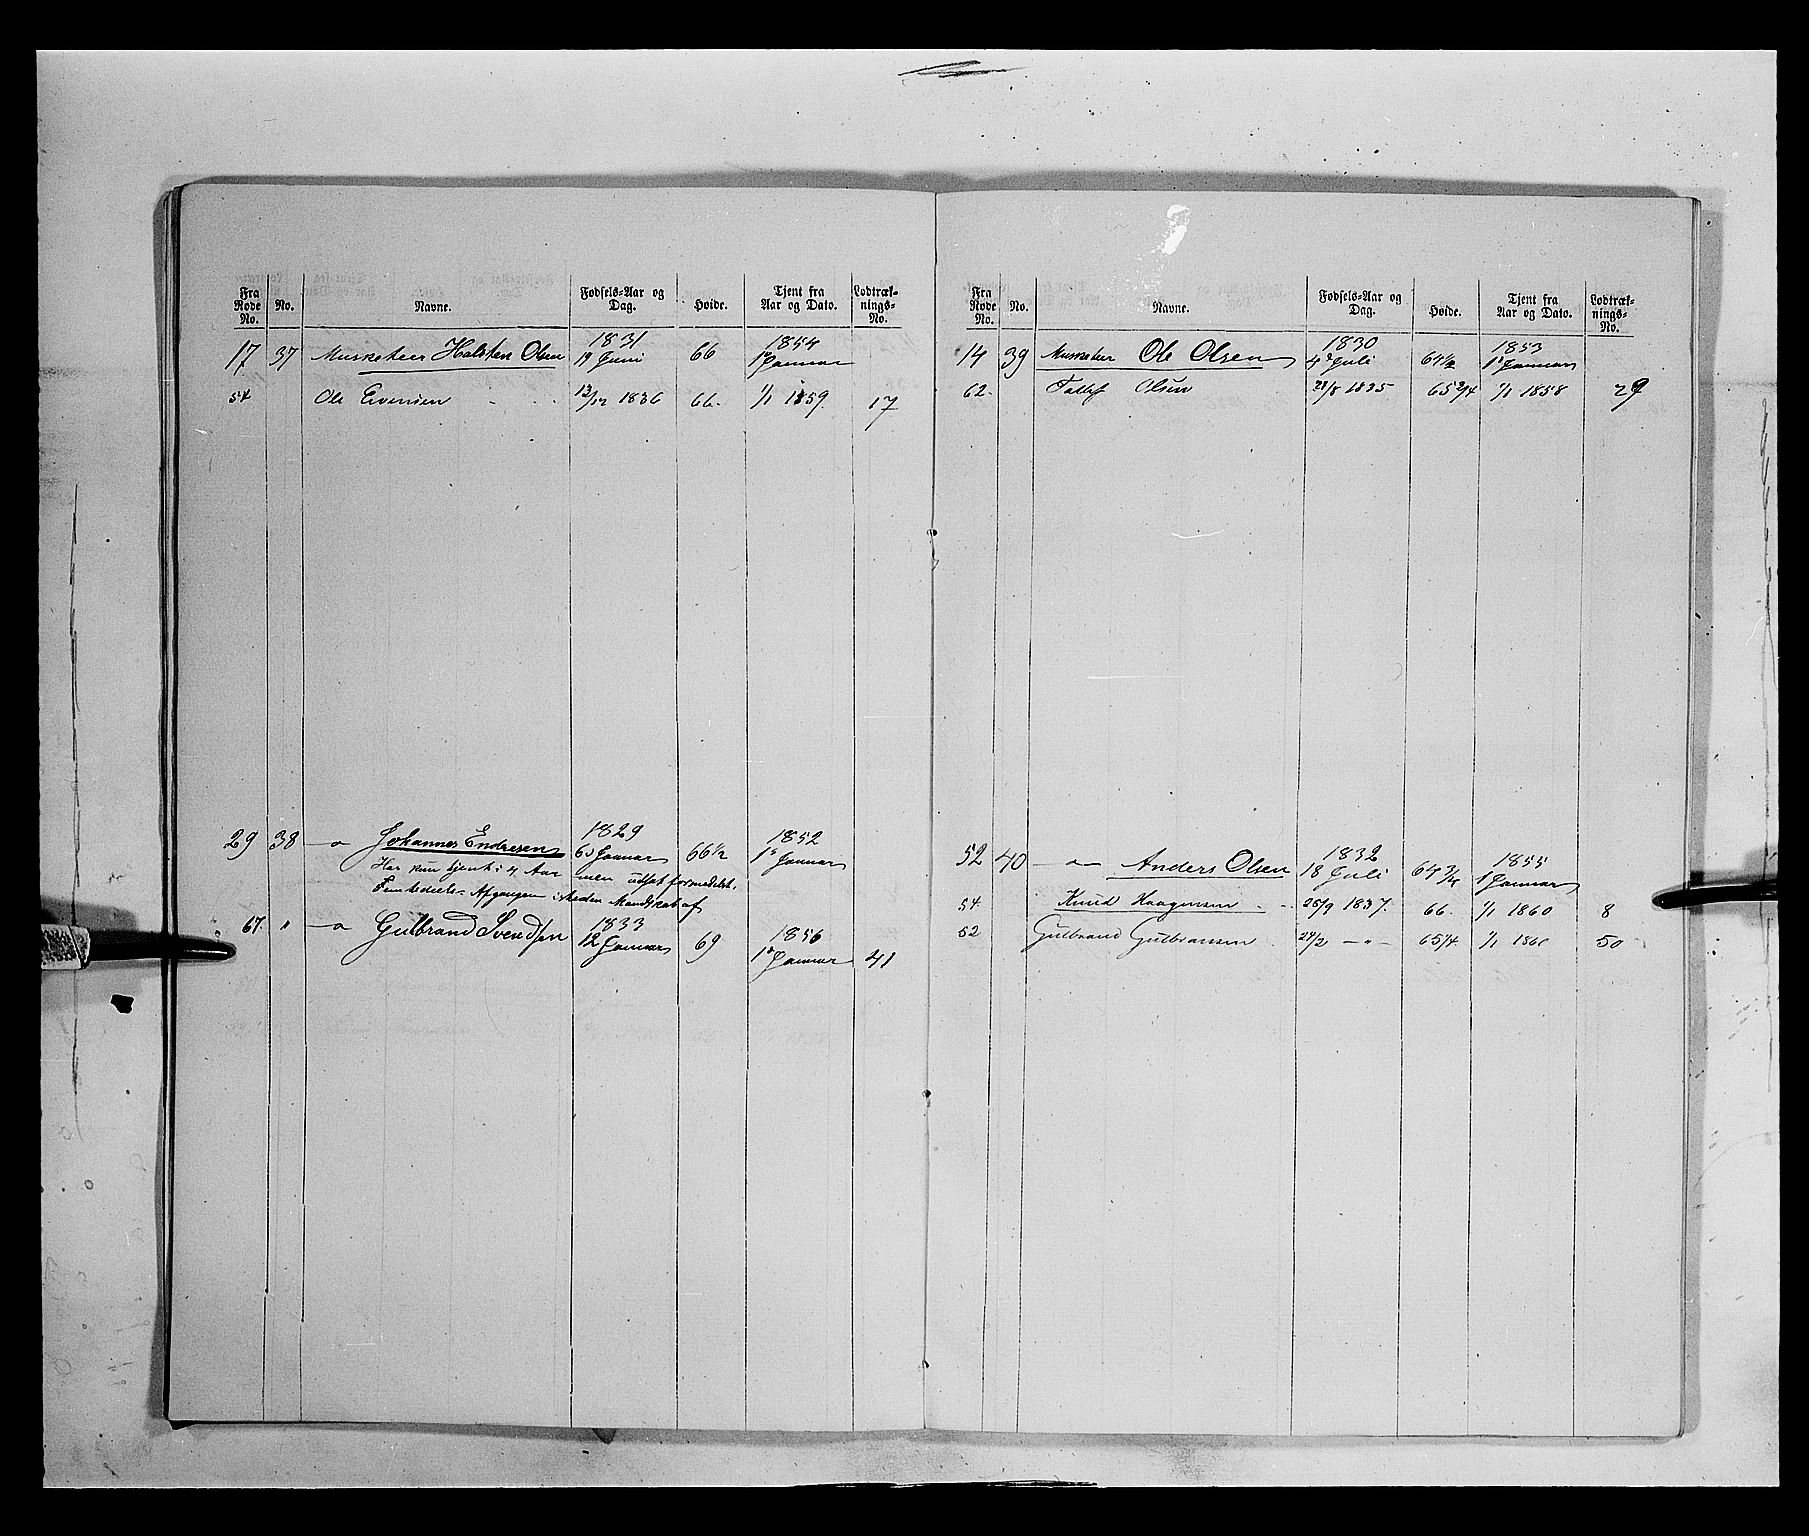 Fra Rode No. No. Navne. Fødsels-Aar og Dag. Høide. Tjent fra Aar og Dato. Lodtræk-nings-No.
17 37 Musketeer Halsten Olsen 1831 19 Juni 66 1854 1 Januar
54 Ole Evensen 13/12 1836 66. 1/1 1859. 17
29 38 —"— Johannes Endresen 1829 6 Januar 66 1/2 1852 1 Januar
Har kun tjent i 4 Aar men udsat formedelst
Femtedeels-Afgangen i Mandskab af
67. " —"— Gulbrand Svendsen 1833 12 Januar 69 1856 1 Januar 41
Fra Rode No. No. Navne. Fødsels-Aar og Dag. Høide. Tjent fra Aar og Dato. Lodtræk-nings-No.
14 39 Musketeer Ole Olsen 1830 4 Juli 64 1/2 1853 1 Januar
62. Tollef Olsen 28/8 1835. 65 3/4 1/1 1858 29
52 40 —"— Anders Olsen 1832 18 Juli 64 3/4 1855 1 Januar
54. Knud Haagensen 25/9 1837. 66. 1/1 1860 8
52 Gulbrand Gulbransen 24/2 —"— 65 1/4. 1/1 1860 50